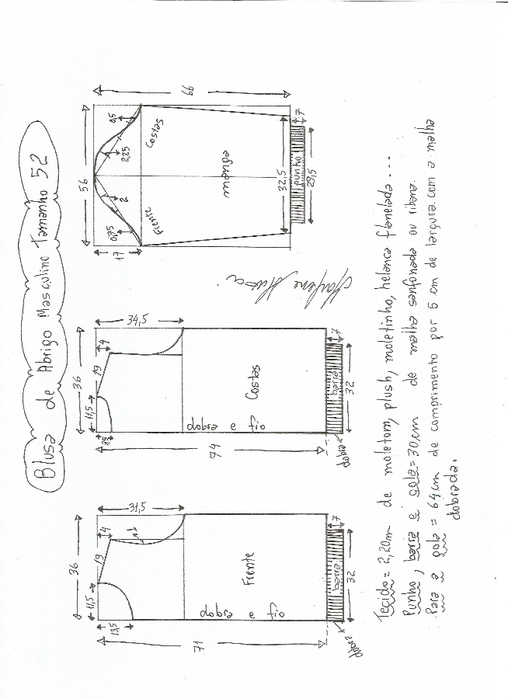 Blusa de Abrigo Masculino Tamanho 52
56
66
17
0,75
2
2,25
0,5
Frente
Costas
manga
32,5
punho
7
28,5
36
34,5
11,5
19
4
Costas
dobra e fio
74
barra
7
32
dobra
36
31,5
11,5
19
4
1
13,5
Frente
dobra e fio
71
barra
7
32
dobra
Tecido = 2,20m de moletom, plush, moletinho, helanca flanelada...
Punho, barra e gola = 30cm de malha sanfonada ou ribana.
Para a gola = 64cm de comprimento por 6 cm de largura com a malha
dobrada.